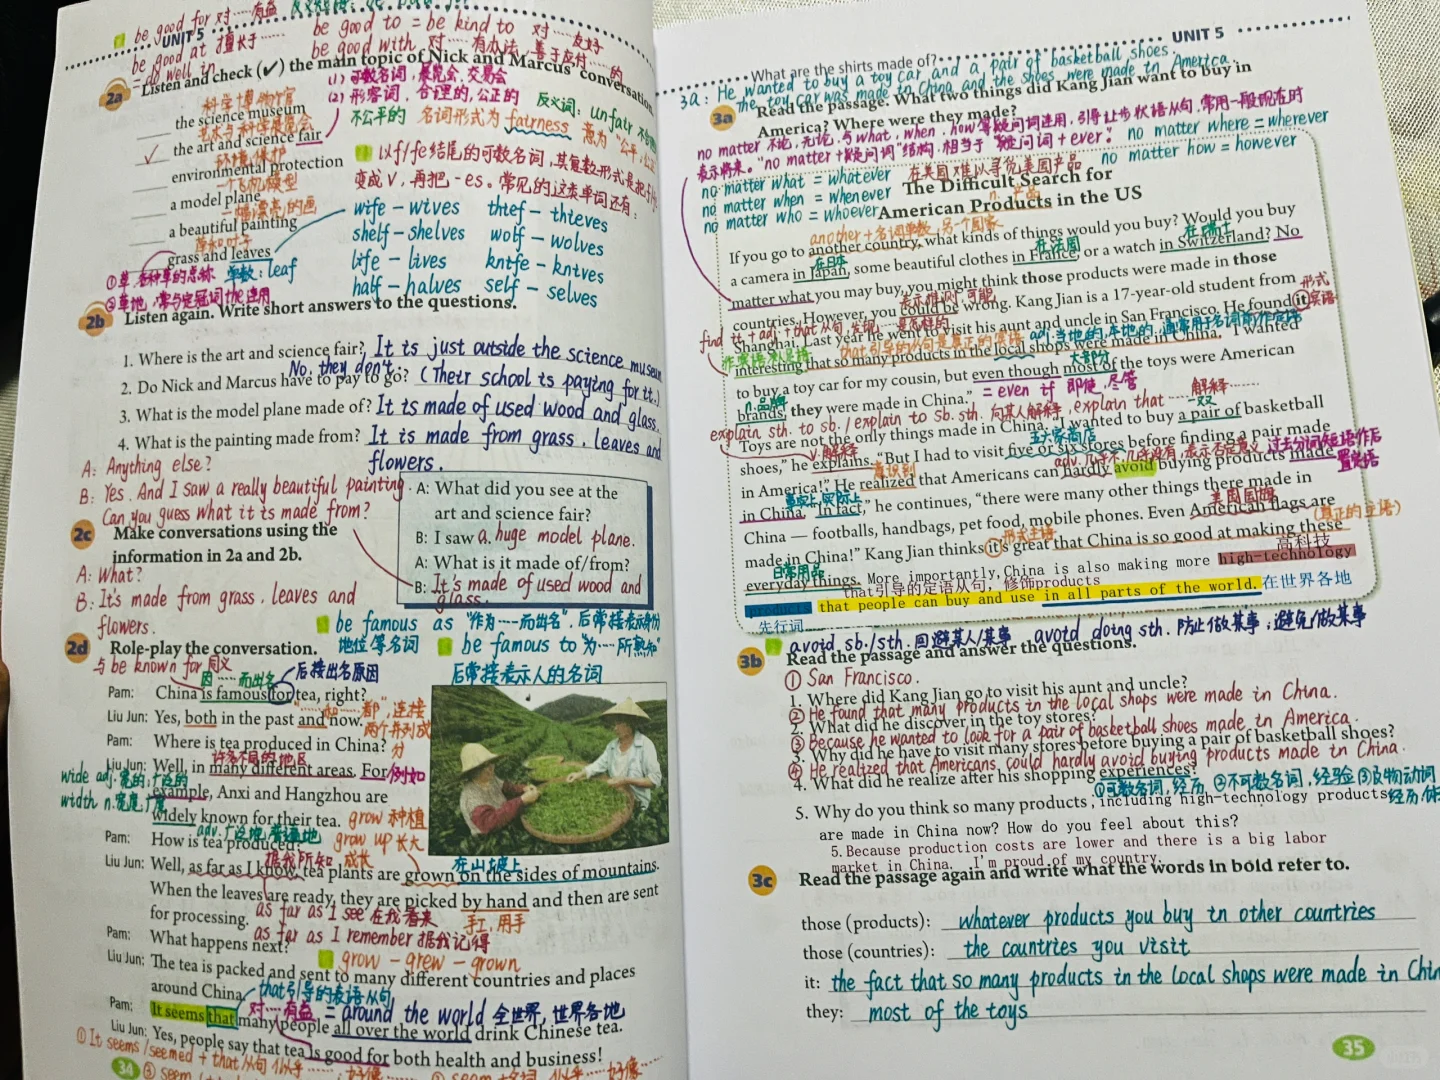 be good for 对……有益
be good to = be kind to 对……友好
be good at 擅长于……
be good with 对……有办法，善于应付……的
do well in
UNIT 5
2a Listen and check (✓) the main topic of Nick and Marcus' conversation.
(1) 可数名词，展览会、交易会
(2) 形容词，合理的，公正的
反义词：unfair
不公平的 名词形式为 fairness 意为"公平，公正
科学博物馆
the science museum
艺术与科学展览会
✓ the art and science fair
环境保护
environmental protection
一个飞机模型
a model plane
一幅漂亮的画
a beautiful painting
草和叶子
grass and leaves
以f/fe结尾的可数名词，其复数形式是把f/fe
变成v，再把-es。常见的这类单词还有：
wife – wives thief – thieves
shelf – shelves wolf – wolves
life – lives knife – knives
half – halves self – selves
①草，各种草的总称 单数：leaf
②草地，常与定冠词the连用
2b Listen again. Write short answers to the questions.
1. Where is the art and science fair? It is just outside the science museum
No, they don't.
2. Do Nick and Marcus have to pay to go? (Their school is paying for it.)
3. What is the model plane made of? It is made of used wood and glass.
4. What is the painting made from? It is made from grass, leaves and
flowers.
A: Anything else?
B: Yes. And I saw a really beautiful painting.
Can you guess what it is made from?
2c Make conversations using the
information in 2a and 2b.
A: What?
B: It's made from grass, leaves and
flowers.
A: What did you see at the
art and science fair?
B: I saw a huge model plane.
A: What is it made of/from?
B: It's made of used wood and
glass.
be famous as "作为……而出名"，后常接表示身份
地位等名词 be famous to "为……所熟知"
后常接表示人的名词
2d Role-play the conversation.
与be known for同义
因……而出名 后接出名原因
Pam: China is famous for tea, right?
"……和……都"，连接
两个并列成
分
Liu Jun: Yes, both in the past and now.
Pam: Where is tea produced in China?
许多不同的地区
Liu Jun: Well, in many different areas. For 例如
example, Anxi and Hangzhou are
widely known for their tea.
wide adj. 宽的，广泛的
width n. 宽度，广度
adv. 广泛地，普遍地
grow 种植
grow up 长大
Pam: How is tea produced?
据我所知 成长 在山坡上
Liu Jun: Well, as far as I know, tea plants are grown on the sides of mountains.
When the leaves are ready, they are picked by hand and then are sent
for processing. as far as I see 在我看来 手工，用手
as far as I remember 据我记得
Pam: What happens next?
grow – grew – grown
Liu Jun: The tea is packed and sent to many different countries and places
around China.
that引导的表语从句
对……有益 = around the world 全世界，世界各地
Pam: It seems that many people all over the world drink Chinese tea.
Liu Jun: Yes, people say that tea is good for both health and business!
①It seems/seemed + that从句 似乎……；好像……
34
UNIT 5
What are the shirts made of?
3a: He wanted to buy a toy car and a pair of basketball shoes.
The toy car was made in China and the shoes were made in America.
3a Read the passage. What two things did Kang Jian want to buy in
America? Where were they made?
no matter 不论，无论，与what, when, how等疑问词连用，引导让步状语从句，常用一般现在时
表示将来。"no matter +疑问词"结构，相当于"疑问词+ever"：
no matter where = wherever
no matter what = whatever 在美国难以寻觅美国产品
no matter how = however
no matter when = whenever
no matter who = whoever
The Difficult Search for
American Products in the US
another+名词单数，另一个国家
If you go to another country, what kinds of things would you buy? Would you buy
在日本 在法国 在瑞士
a camera in Japan, some beautiful clothes in France, or a watch in Switzerland? No
matter what you may buy, you might think those products were made in those
表示推测，可能
countries. However, you could be wrong. Kang Jian is a 17-year-old student from
形式
宾语
Shanghai. Last year he went to visit his aunt and uncle in San Francisco. He found it
find it + adj. + that从句，发现……是怎样的
that引导的从句是真正的宾语
adj. 当地的，本地的，通常用于名词前作定语
interesting that so many products in the local shops were made in China. "I wanted
大部分
to buy a toy car for my cousin, but even though most of the toys were American
n.品牌
brands, they were made in China." = even if 即使，尽管
解释……
explain sth. to sb. / explain to sb. sth. 向某人解释，explain that
v.解释 五六家商店 一双
Toys are not the only things made in China. "I wanted to buy a pair of basketball
shoes," he explains. "But I had to visit five or six stores before finding a pair made
意识到
adv. 几乎不，几乎没有，表示否定意义
过去分词短语作后
置定语
in America!" He realized that Americans can hardly avoid buying products made
事实上，实际上
in China. "In fact," he continues, "there were many other things there made in
美国国旗
China — footballs, handbags, pet food, mobile phones. Even American flags are
形式主语 (真正的主语)
made in China!" Kang Jian thinks it's great that China is so good at making these
日常用品 高科技
everyday things. More importantly, China is also making more high-technology
that引导的定语从句，修饰products
products that people can buy and use in all parts of the world. 在世界各地
先行词
avoid sb./sth. 回避某人/某事 avoid doing sth. 防止做某事；避免做某事
3b Read the passage and answer the questions.
① San Francisco.
1. Where did Kang Jian go to visit his aunt and uncle?
② He found that many products in the local shops were made in China.
2. What did he discover in the toy stores?
③ Because he wanted to look for a pair of basketball shoes made in America.
3. Why did he have to visit many stores before buying a pair of basketball shoes?
④ He realized that Americans could hardly avoid buying products made in China.
4. What did he realize after his shopping experiences?
①可数名词，经历，②不可数名词，经验③及物动词
5. Why do you think so many products, including high-technology products
are made in China now? How do you feel about this?
5. Because production costs are lower and there is a big labor
market in China. I'm proud of my country.
3c Read the passage again and write what the words in bold refer to.
those (products): whatever products you buy in other countries
those (countries): the countries you visit
it: the fact that so many products in the local shops were made in Chin
they: most of the toys
35